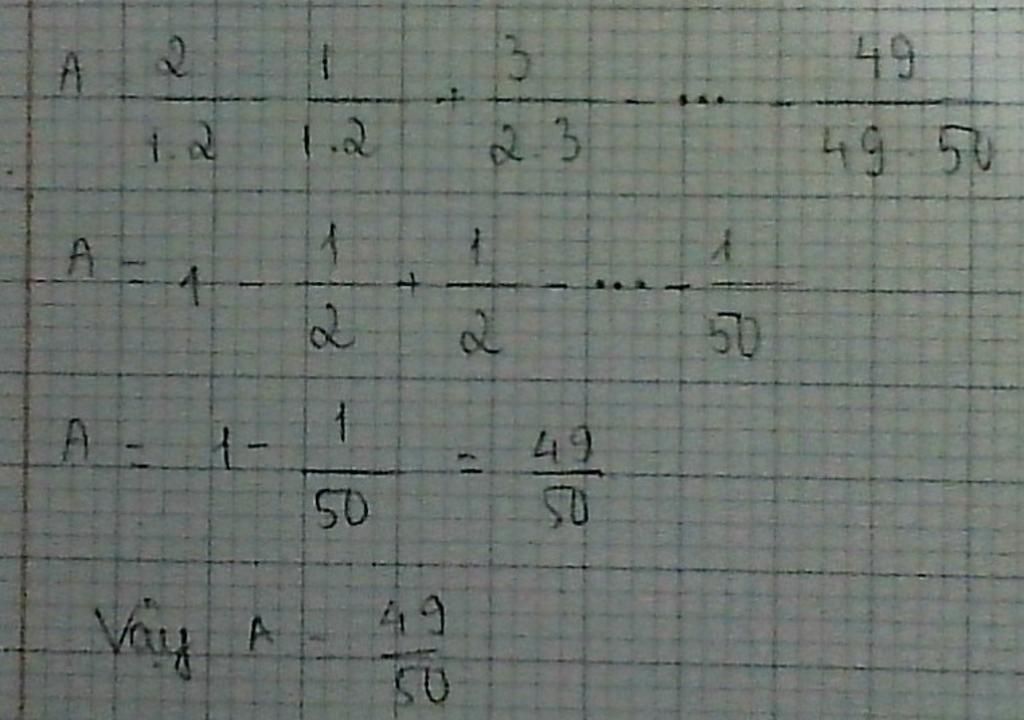 A 2/1.2 1/1.2 + 3/2.3 - ... - 49/49.50
A = 1 - 1/2 + 1/2 - ... - 1/50
A = 1 - 1/50 = 49/50
Vậy A = 49/50